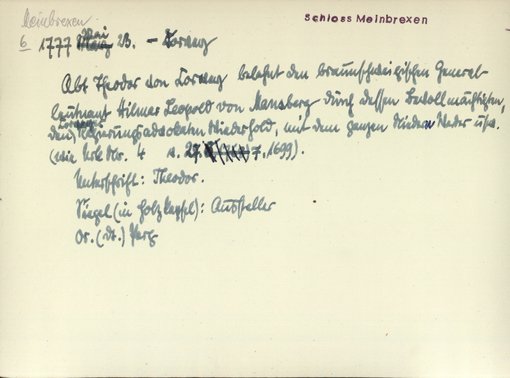 Meinbrexen
Schloss Meinbrexen
6 1777 Mai 23. – Corvey
Abt Theodor von Corvey belehnt den braunschweigischen General-
leutnant Hilmer Leopold von Mansberg durch dessen Bevollmächtigten,
den Corveyer Regierungsadvokaten Niederhold, mit dem ganzen Niedern Meder usw.
(wie Urk Nr. 4 v. 27. 7. 1699).
Unterschrift: Theodor.
Siegel (in Holzkapsel): Aussteller
Or. (dt.) Perg